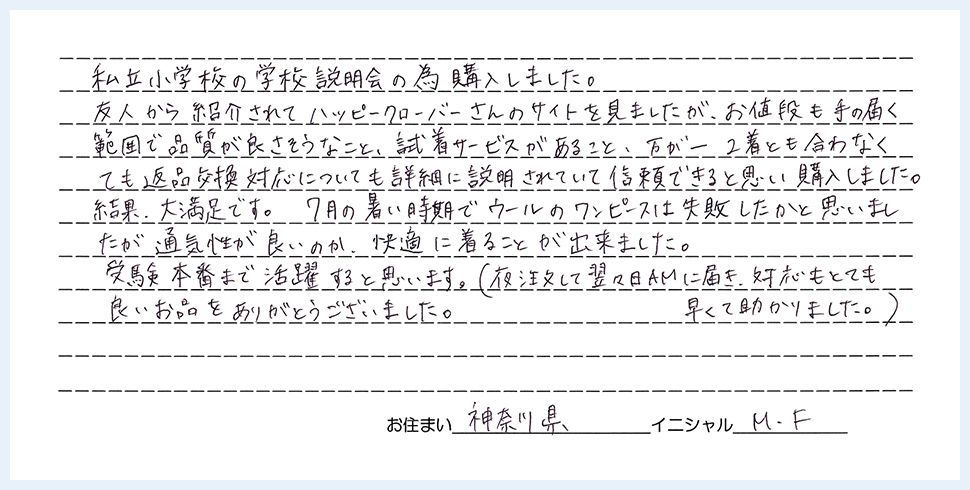 私立小学校の学校説明会の為購入しました。
友人から紹介されてハッピークローバーさんのサイトを見ましたが、お値段も手の届く
範囲で品質が良さそうなこと、試着サービスがあること、万が一 2着とも合わなく
ても返品交換対応についても詳細に説明されていて信頼できると思い購入しました。
結果、大満足です。 7月の暑い時期でウールのワンピースは失敗したかと思いまし
たが通気性が良いのか、快適に着ることが出来ました。
受験本番まで活躍すると思います。(夜注文して翌々日AMに届き、対応もとても
良いお品をありがとうございました。 早くて助かりました。)
お住まい 神奈川県 イニシャル M・F